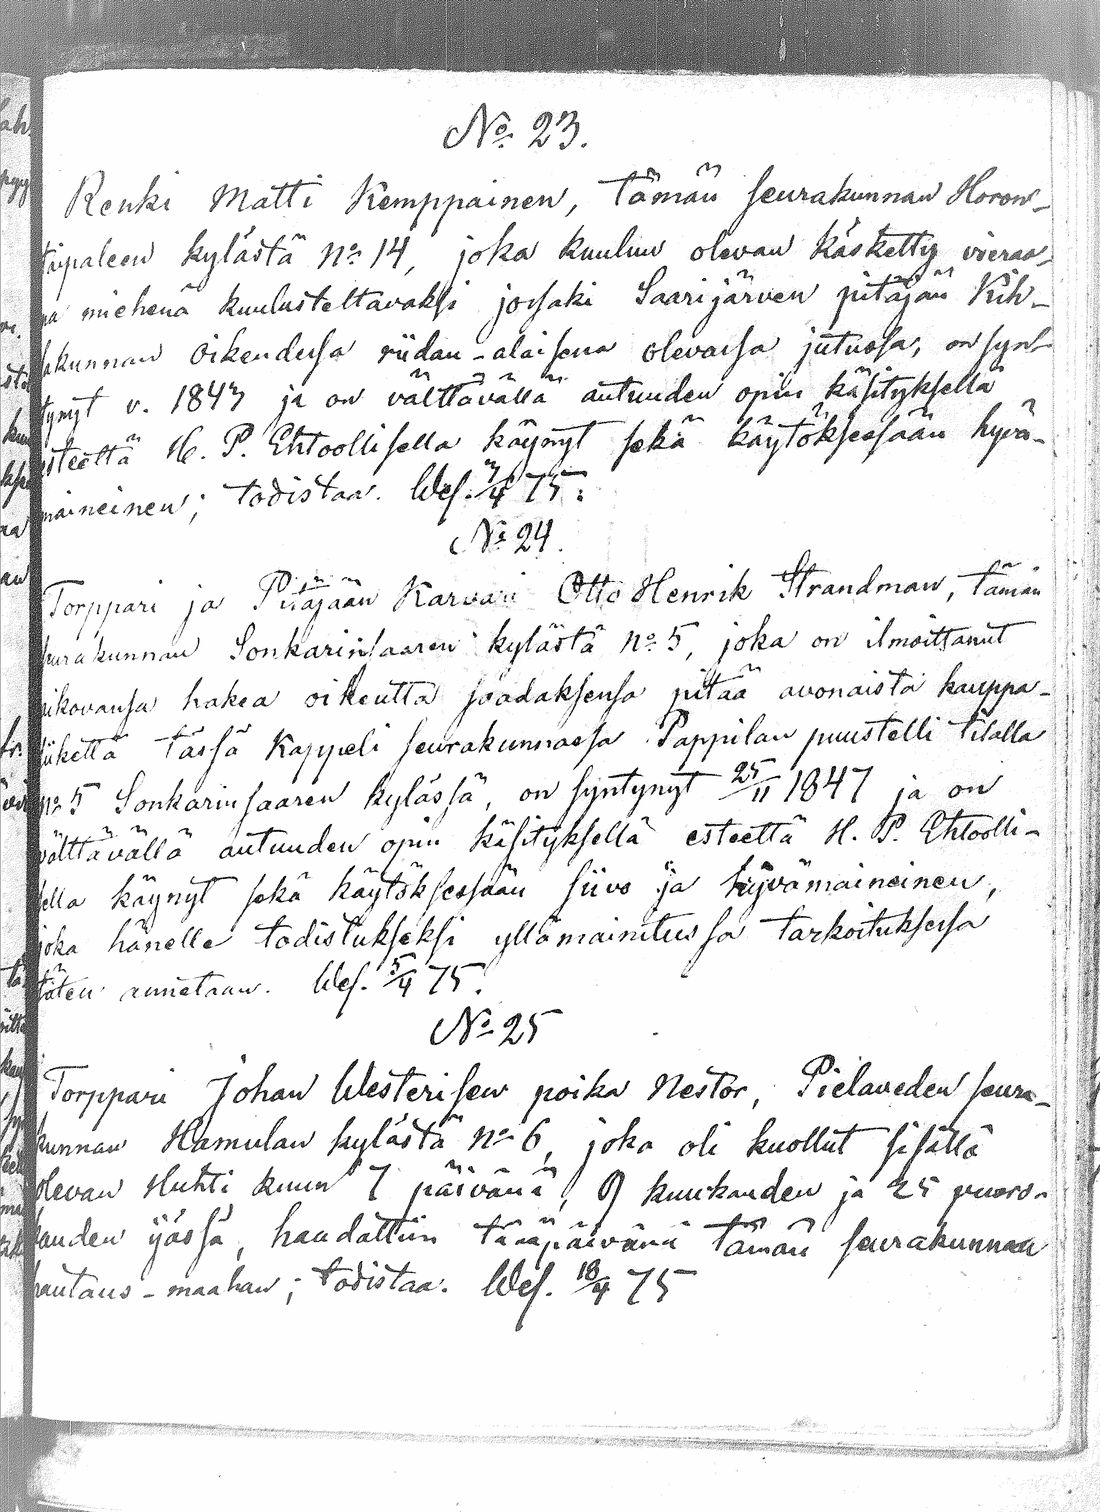 No. 23.
Renki Matti Kemppainen, tämän seurakunnan Horon-
taipaleen kylästä No 14, joka kuuluu olevan käsketty vieraa-
na miehenä kuulusteltavaksi jossaki Saarijärven pitäjän Kih-
lakunnan oikeudessa riidan-alaisena olevassa jutussa, on synt-
tynyt v. 1847 ja on välttävällä autuuden opin käsityksellä
esteettä H. P. Ehtoollisella käynyt sekä käytöksessään hyvä-
maineinen; todistaa. Wes. 3/4 75.
No. 24.
Torppari ja Pitäjään Karvari Otto Henrik Strandman, tämän
seurakunnan Sonkarinsaaren kylästä No 5, joka on ilmoittanut
aikovansa hakea oikeutta saadaksensa pitää avonaista kauppa-
liikettä tässä Kappeli seurakunnassa Pappilan puustelli tilalla
No 5 Sonkarinsaaren kylässä, on syntynyt 25/11 1847 ja on
välttävällä autuuden opin käsityksellä esteettä H. P. Ehtoolli-
sella käynyt sekä käytöksessään siivo ja hyvämaineinen,
joka hänelle todistukseksi yllämainitussa tarkoituksessa
täten annetaan. Wes. 5/4 75.
No. 25
Torppari Johan Westerisen poika Nestor, Pielaveden seura-
kunnan Hamulan kylästä No 6, joka oli kuollut sisällä
olevan Huhti kuun 7 päivänä, 9 kuukauden ja 25 vuoro-
kauden ijässä, haudattiin tänäpäivänä tämän seurakunnan
hautaus-maahan; todistaa. Wes. 18/4 75